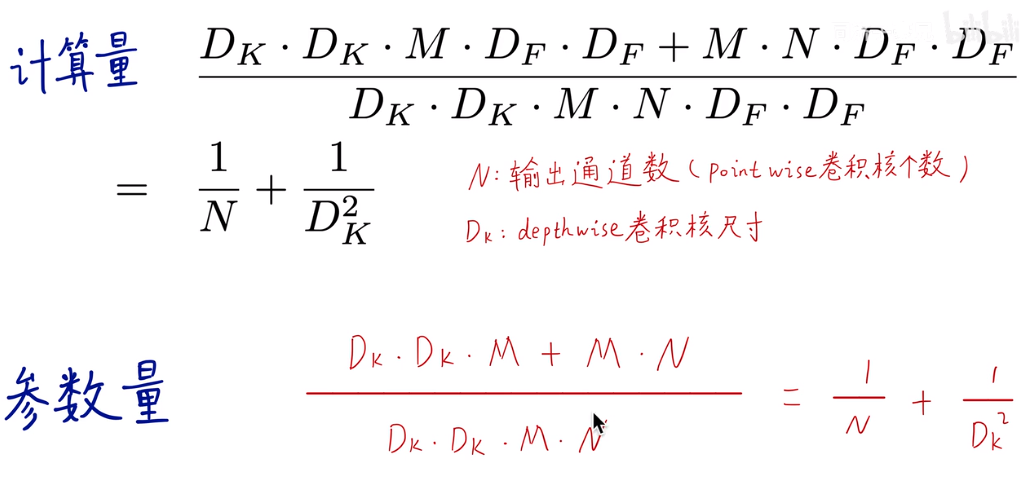 计算量 \frac{D_K \cdot D_K \cdot M \cdot D_F \cdot D_F + M \cdot N \cdot D_F \cdot D_F}{D_K \cdot D_K \cdot M \cdot N \cdot D_F \cdot D_F}
= \frac{1}{N} + \frac{1}{D_K^2}
N:输出通道数(pointwise卷积核个数)
D_K:depthwise卷积核尺寸
参数量 \frac{D_K \cdot D_K \cdot M + M \cdot N}{D_K \cdot D_K \cdot M \cdot N} = \frac{1}{N} + \frac{1}{D_K^2}
bilibili